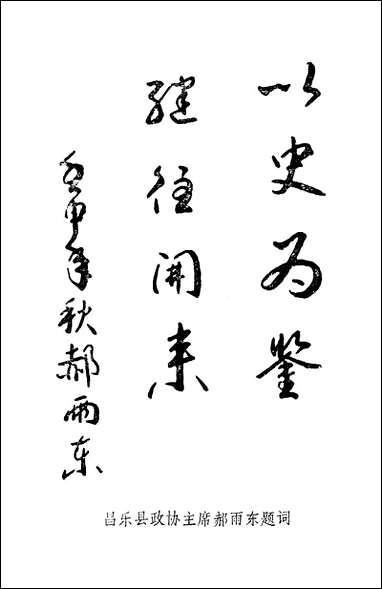 以史为鉴
继往开来
壬申年秋郝雨东
昌乐县政协主席郝雨东题词